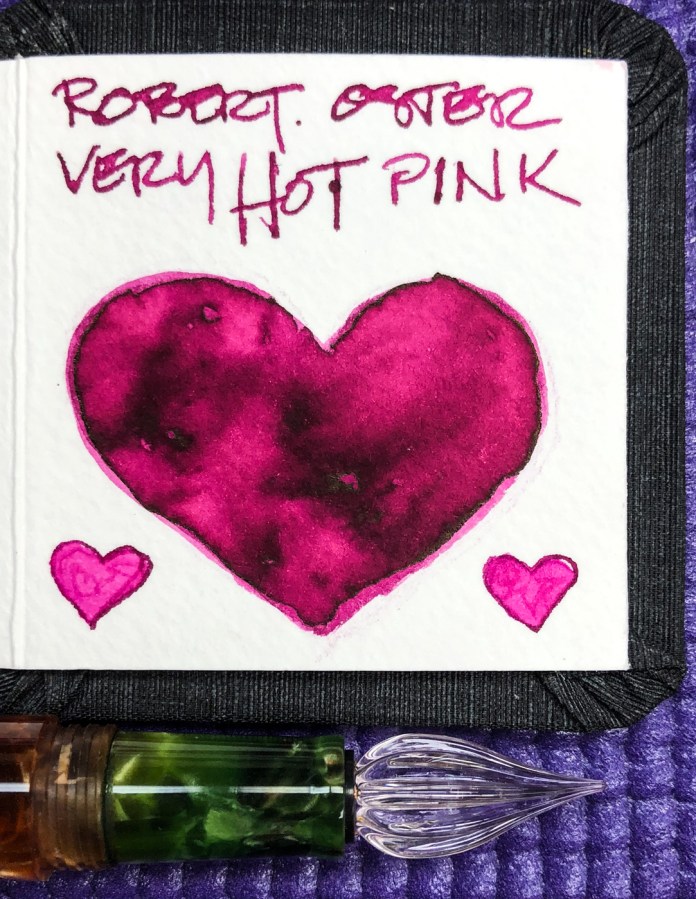 ROBERT. OSTER
VERY HOT PINK